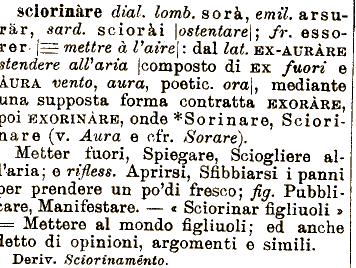 sciorinàre dial. lomb. sorà, emil. arsu-
rär, sard. sciorài |ostentare|; fr. esso-
rer |≡ mettre à l'aire|: dal lat. EX-AURÀRE
stendere all'aria |composto di EX fuori e
ÀURA vento, aura, poetic. ora|, mediante
una supposta forma contratta EXORÀRE,
poi EXORINÀRE, onde *Sorinare, Sciori-
nare (v. Aura e cfr. Sorare).
Metter fuori, Spiegare, Sciogliere al-
l'aria; e rifless. Aprirsi, Sfibbiarsi i panni
per prendere un po'di fresco; fig. Pubbli-
care, Manifestare. — « Sciorinar figliuoli »
= Mettere al mondo figliuoli; ed anche
detto di opinioni, argomenti e simili.
Deriv. Sciorinaménto.